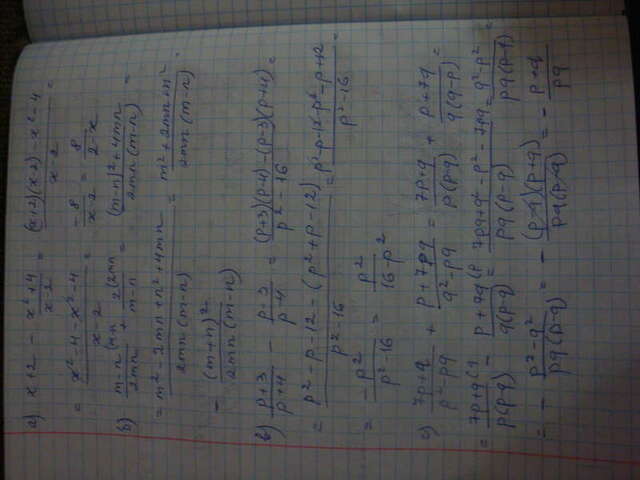 а) x+2 - (x²+4)/(x-2) = ((x+2)(x-2) - x² - 4)/(x-2) =
= (x² - 4 - x² - 4)/(x-2) = -8/(x-2) = 8/(2-x)
б) (m-n)/(2mn) + 2/(m-n) = ((m-n)²+4mn)/(2mn(m-n)) =
= (m² - 2mn + n² + 4mn)/(2mn(m-n)) = (m² + 2mn + n²)/(2mn(m-n))
- (m+n)²/(2mn(m-n))
в) (p+3)/(p+4) - (p-3)/(p-4) = ((p+3)(p-4) - (p-3)(p+4))/(p² - 16) =
= (p² - p - 12 - (p² + p - 12))/(p² - 16) = (p² - p - 12 - p² - p + 12)/(p² - 16) =
= -p²/(p² - 16) = p²/(16-p²)
(7p+q)/(p² - pq) + (p+7q)/(q² - pq) = (7p+q)/(p(p-q)) + (p+7q)/(q(q-p)) =
= - (p² - q²)/(pq(p-q)) = - ((p-q)(p+q))/(pq(p-q)) = - (p+q)/(pq)